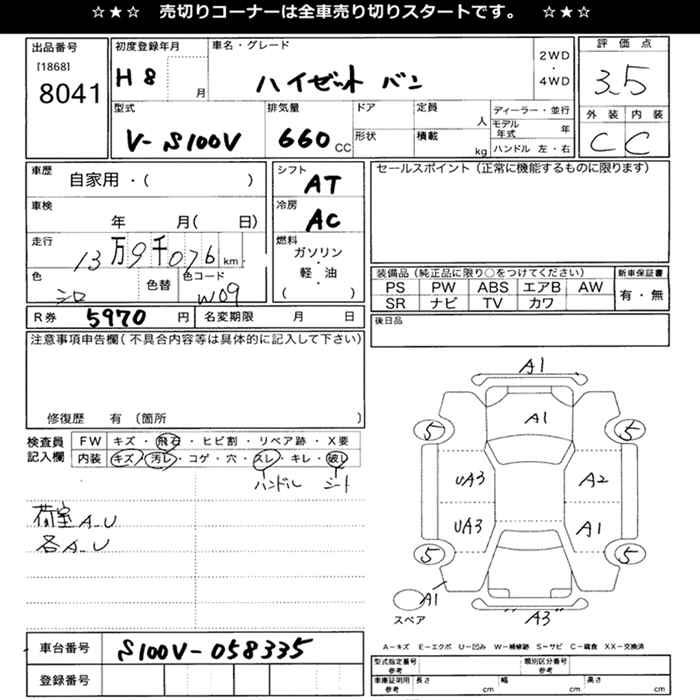 ☆★☆ 売切りコーナーは全車売り切りスタートです。 ☆★☆
出品番号
[1868]
8041
初度登録年月
H8
月
車名・グレード
ハイゼット バン
2WD
・
4WD
評価点
3.5
外装 内装
C C
型式
V-S100V
排気量
660 CC
ドア
形状
定員
人
積載
kg
ディーラー・並行
モデル年式
年
ハンドル 左・右
車歴
自家用・( )
車検
年 月( 日)
走行
13万9千076 km
色
シロ
色替
色コード
W09
シフト
AT
冷房
AC
燃料
ガソリン
・
軽・油
( )
セールスポイント(正常に機能するものに限ります)
装備品(純正品に限り○をつけてください)
新車保証書
PS PW ABS エアB AW
SR ナビ TV カワ
有・無
R券 5970 円
名変期限 月 日
後日品
注意事項申告欄(不具合内容等は具体的に記入して下さい)
修復歴 有 (箇所 )
検査員
記入欄
FW キズ・飛石・ヒビ割・リペア跡・X要
内装 キズ・汚レ・コゲ・穴・スレ・キレ・破レ
ハンドル シート
荷室 A_U
各A_U
A1
A1
5 5
UA3 A2
UA3 A1
5 5
A1
スペア
A3
A-キズ E-エクボ U-凹み W-補修跡 S-サビ C-腐食 XX-交換済
車台番号
S100V-058335
登録番号
型式指定番号
参考
類別区分番号
参考
車庫証明用
参考
長さ cm
幅 cm
高さ cm